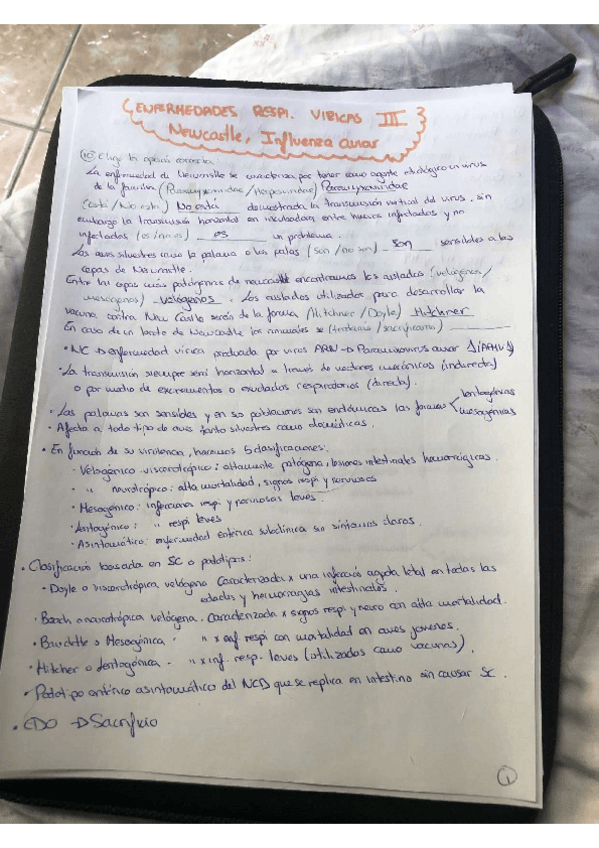 ENFERMEDADES RESPI. VIRICAS III
Newcastle, Influenza aviar
Elige la opción correcta.
La enfermedad de Newcastle se caracteriza por tener como agente etiológico un virus
de la familia (Paramyxoviridae / Herpesviridae) Paramyxoviridae
(está / No está) No está demostrada la transmisión vertical del virus, sin
embargo la transmisión horizontal en incubadora, entre huevos infectados y no
infectados, (es / no es) es un problema.
Las aves silvestres como la paloma o los patos (son / no son) son sensibles a las
cepas de Newcastle.
Entre las cepas más patógenas de newcastle encontramos los aislados (velogénos /
mesogénos) velogénos. Los aislados utilizados para desarrollar la
vacuna contra New Castle serán de la forma (Hitchner / Doyle) Hitchner
En caso de un brote de Newcastle los animales se (tratarán / sacrificarán)
• NC → enfermedad vírica producida por virus ARN → Paramixovirus aviar 1 (APMV1)
• La transmisión siempre será horizontal a través de vectores mecánicos (indirecta)
o por medio de excrementos o exudados respiratorios (directa).
• Las palomas son sensibles y en sus poblaciones son endémicas las formas < lentogénicas
mesogénicas
• Afecta a todo tipo de aves tanto silvestres como domésticas.
• En función de su virulencia, hacemos 5 clasificaciones:
• Velogénico viscerotrópico: altamente patógena, lesiones intestinales hemorrágicas.
• " neurotrópico: alta mortalidad, signos respi y nerviosos
• Mesogénico: infecciones respi. y nerviosas leves.
• Lentogénico: " respi leves
• Asintomático: enfermedad entérica subclínica sin síntomas claros.
• Clasificación basada en SC o patotipos:
• Doyle o viscerotrópica velógena caracterizada x una infección aguda letal en todas las
edades y hemorragias intestinales.
• Beach o neurotrópica velógena. Caracterizada x signos respi y neuro con alta mortalidad.
• Beaudette o Mesogénica. " x inf. respi con mortalidad en aves jóvenes.
• Hitcher o lentogénica. " x inf. resp. leves (utilizados como vacunas).
• Patotipo entérico asintomático del NCD que se replica en intestino sin causar SC.
• EDO → Sacrificio
1